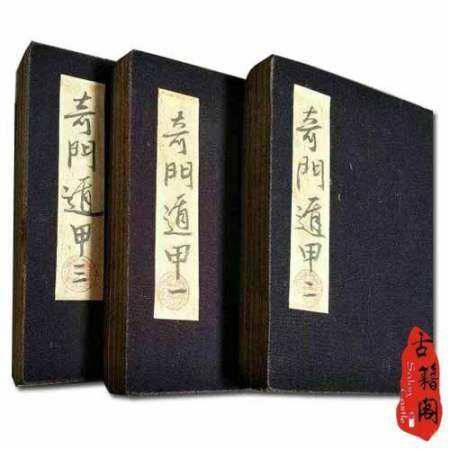 奇門遁甲三
奇門遁甲一
奇門遁甲二
古籍阁